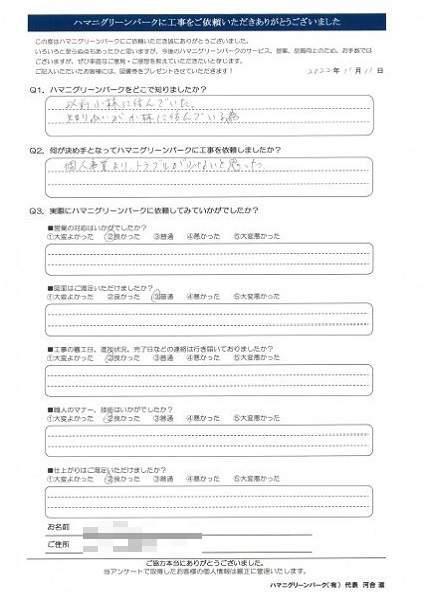 ハマニグリーンパークに工事をご依頼いただきありがとうございました
この度はハマニグリーンパークにご依頼いただき誠にありがとうございました。
いろいろと至らぬ点もあったかと思いますが、今後のハマニグリーンパークのサービス、提案、品質向上のため、お手数では
ございますが、ぜひ率直なご意見・ご感想を教えていただきたいと存じます。
ご記入いただいたお客様には、図書券をプレゼントさせていただきます！
2022年 11月 11日
Q1．ハマニグリーンパークをどこで知りましたか？
以前小林に住んでいた。
知りあいが小林に住んでいる為
Q2．何が決め手となってハマニグリーンパークに工事を依頼しましたか？
個人事業より、トラブルが少ないと思った
Q3．実際にハマニグリーンパークに依頼してみていかがでしたか？
■営業の対応はいかがでしたか？
①大変よかった ②良かった ③普通 ④悪かった ⑤大変悪かった
■図面はご満足いただけましたか？
①大変よかった ②良かった ③普通 ④悪かった ⑤大変悪かった
■工事の着工日、進捗状況、完了日などの連絡は行き届いておりましたか？
①大変よかった ②良かった ③普通 ④悪かった ⑤大変悪かった
■職人のマナー、技術はいかがでしたか？
①大変よかった ②良かった ③普通 ④悪かった ⑤大変悪かった
■仕上がりはご満足いただけましたか？
①大変よかった ②良かった ③普通 ④悪かった ⑤大変悪かった
お名前
ご住所
ご協力本当にありがとうございました。
当アンケートで取得したお客様の個人情報は厳正に管理いたします。
ハマニグリーンパーク(有) 代表 河合